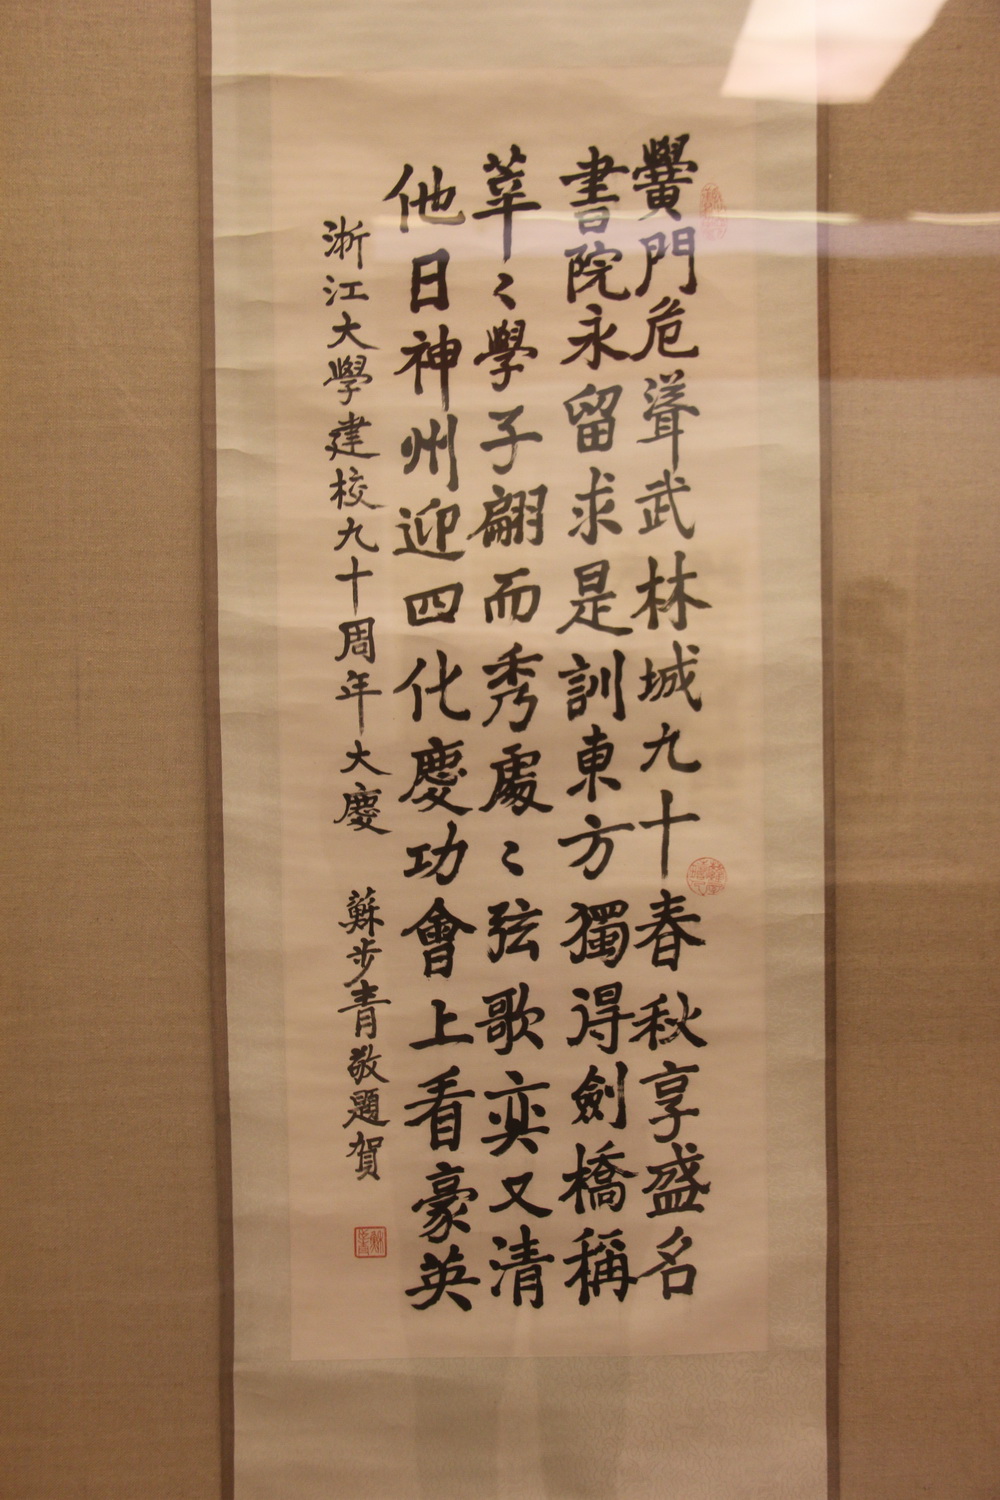 黌門危聳武林城九十春秋享盛名
書院永留求是訓東方獨得劍橋稱
莘〻學子翩而秀處〻弦歌奕又清
他日神州迎四化慶功會上看豪英
浙江大學建校九十周年大慶 蘇步青敬題賀